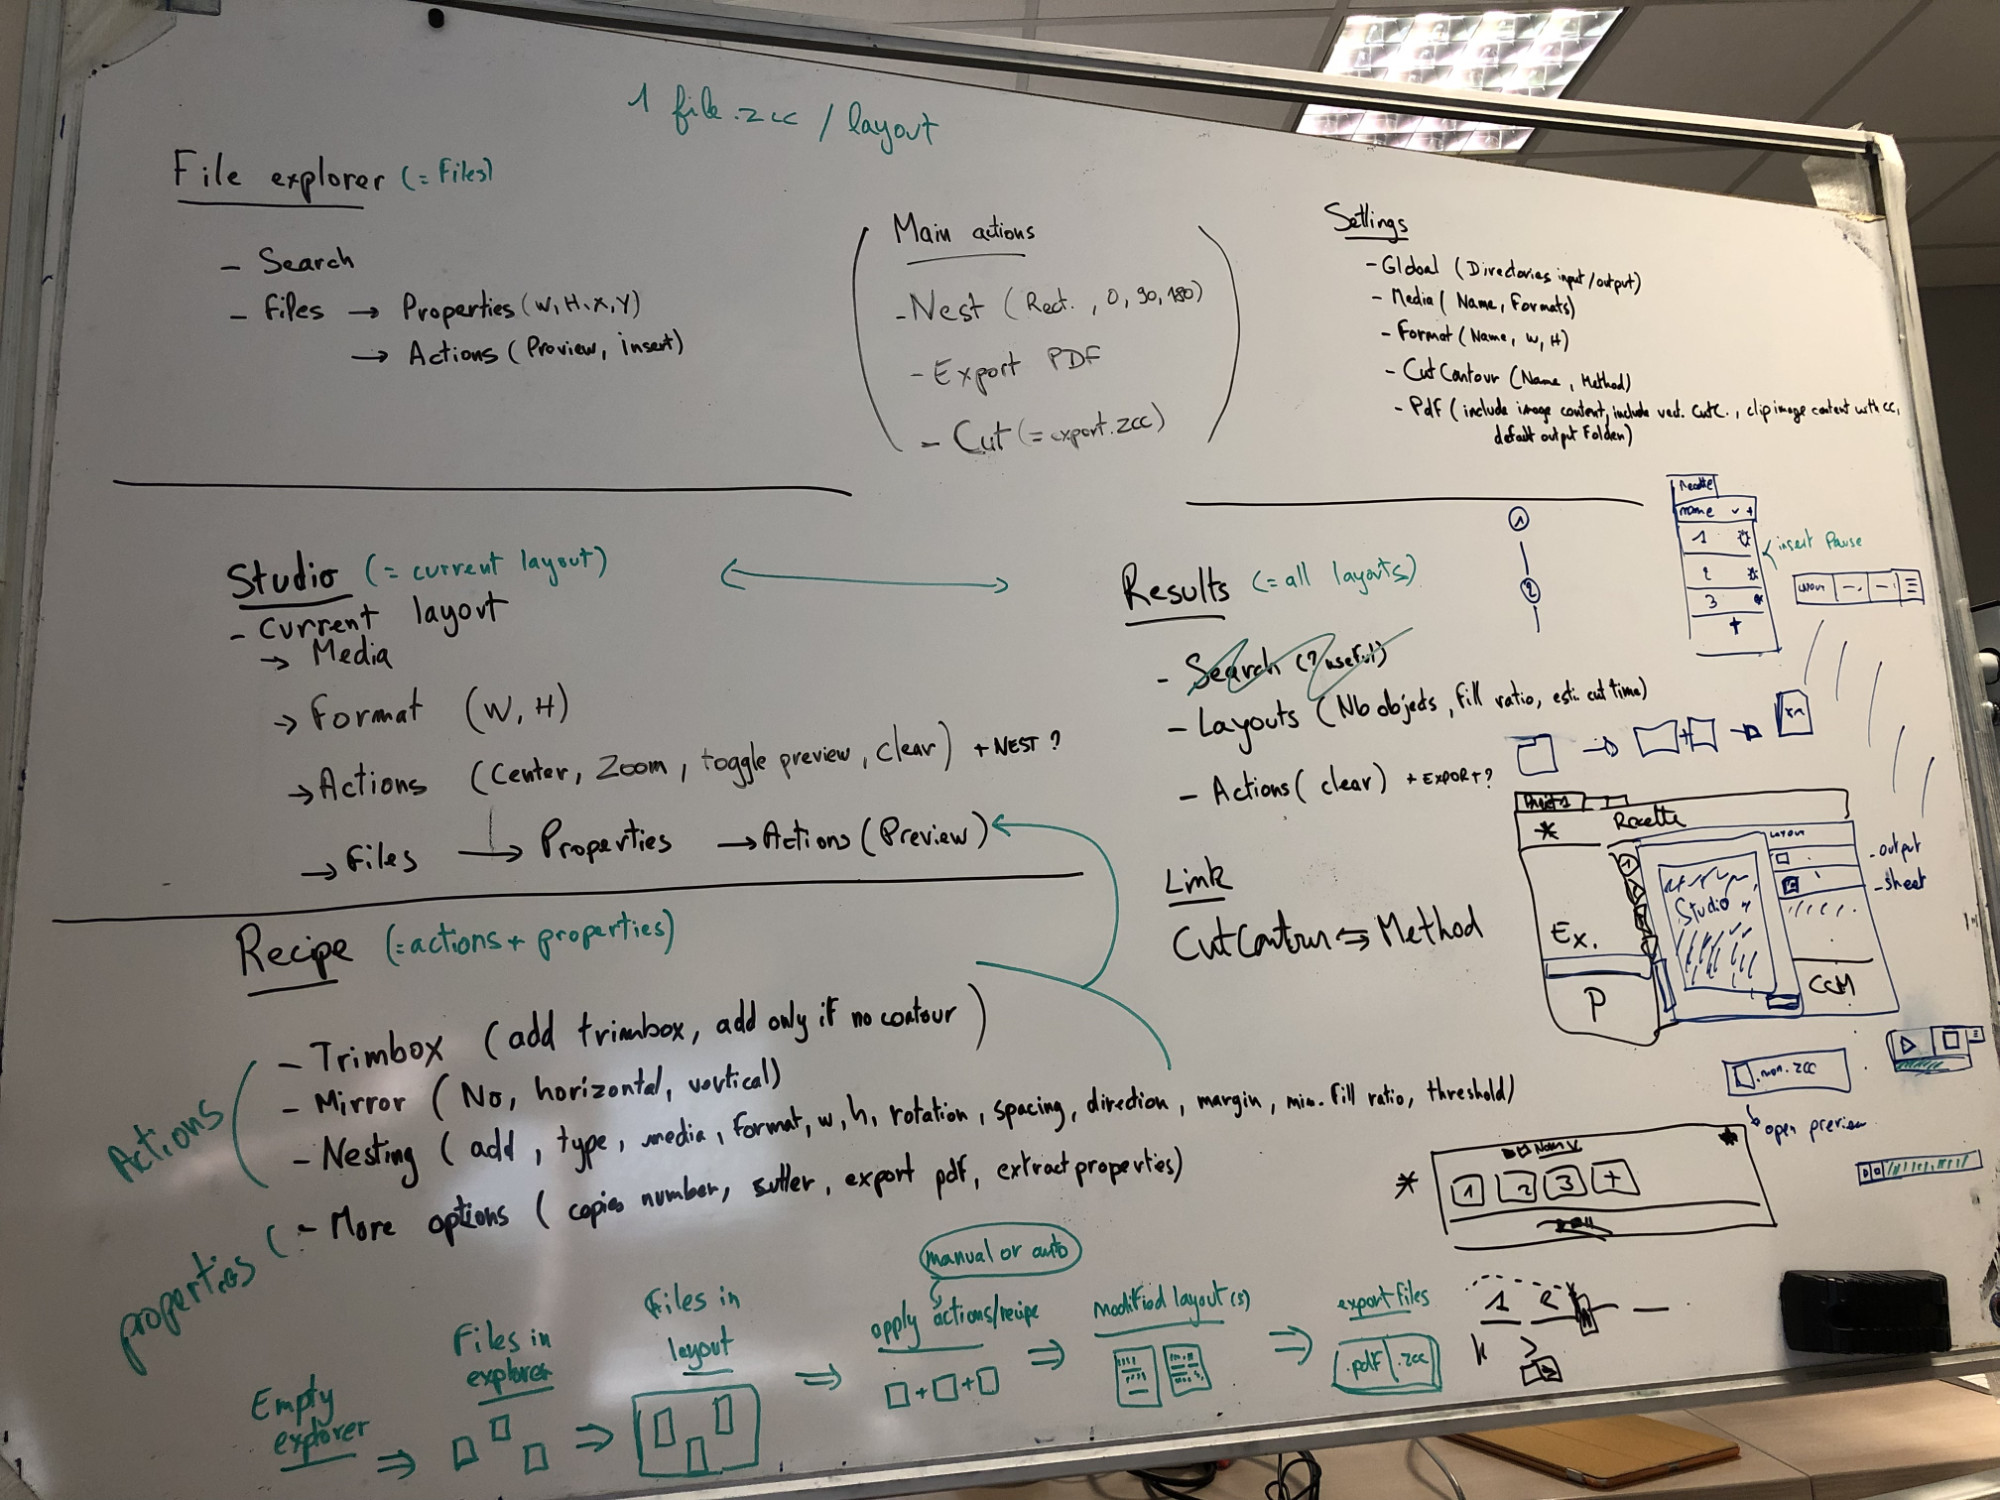 1 file.zcc / layout
File explorer (= Files)
- Search
- Files → Properties (W, H, X, Y)
→ Actions (Preview, insert)
Main actions
- Nest (Rect., 0, 90, 180)
- Export PDF
- Cut (= export.zcc)
Settings
- Global (Directories input/output)
- Media (Name, Formats)
- Format (Name, W, H)
- CutContour (Name, Method)
- Pdf (include image content, include vect. CutC., clip image content with CC,
default output Folder)
Studio (= current layout)
- Current layout
→ Media
→ Format (W, H)
→ Actions (Center, Zoom, toggle preview, clear) + NEST ?
→ Files → Properties → Actions (Preview)
Results (= all layouts)
- Search (? useful)
- Layouts (Nb objects, fill ratio, esti. cut time)
- Actions (clear) + EXPORT ?
Link
CutContour ⇆ Method
1
2
Recette
name +
1
2
3
+
insert Pause
Recette
Ex.
P
Studio
Layout
CCM
- output
- sheet
.zcc
open preview
Recipe (= actions + properties)
Actions
- Trimbox (add trimbox, add only if no contour)
- Mirror (No, horizontal, vertical)
- Nesting (add, type, media, format, w, h, rotation, spacing, direction, margin, min. fill ratio, threshold)
properties
- More options (copies number, export pdf, extract properties)
* 1 2 3 +
Empty
explorer ⇒
Files in
explorer
⇒
Files in
layout
⇒
manual or auto
apply actions/recipe
□+□+□
⇒
modified layout(s)
⇒
export files
.pdf | .zcc
1 2